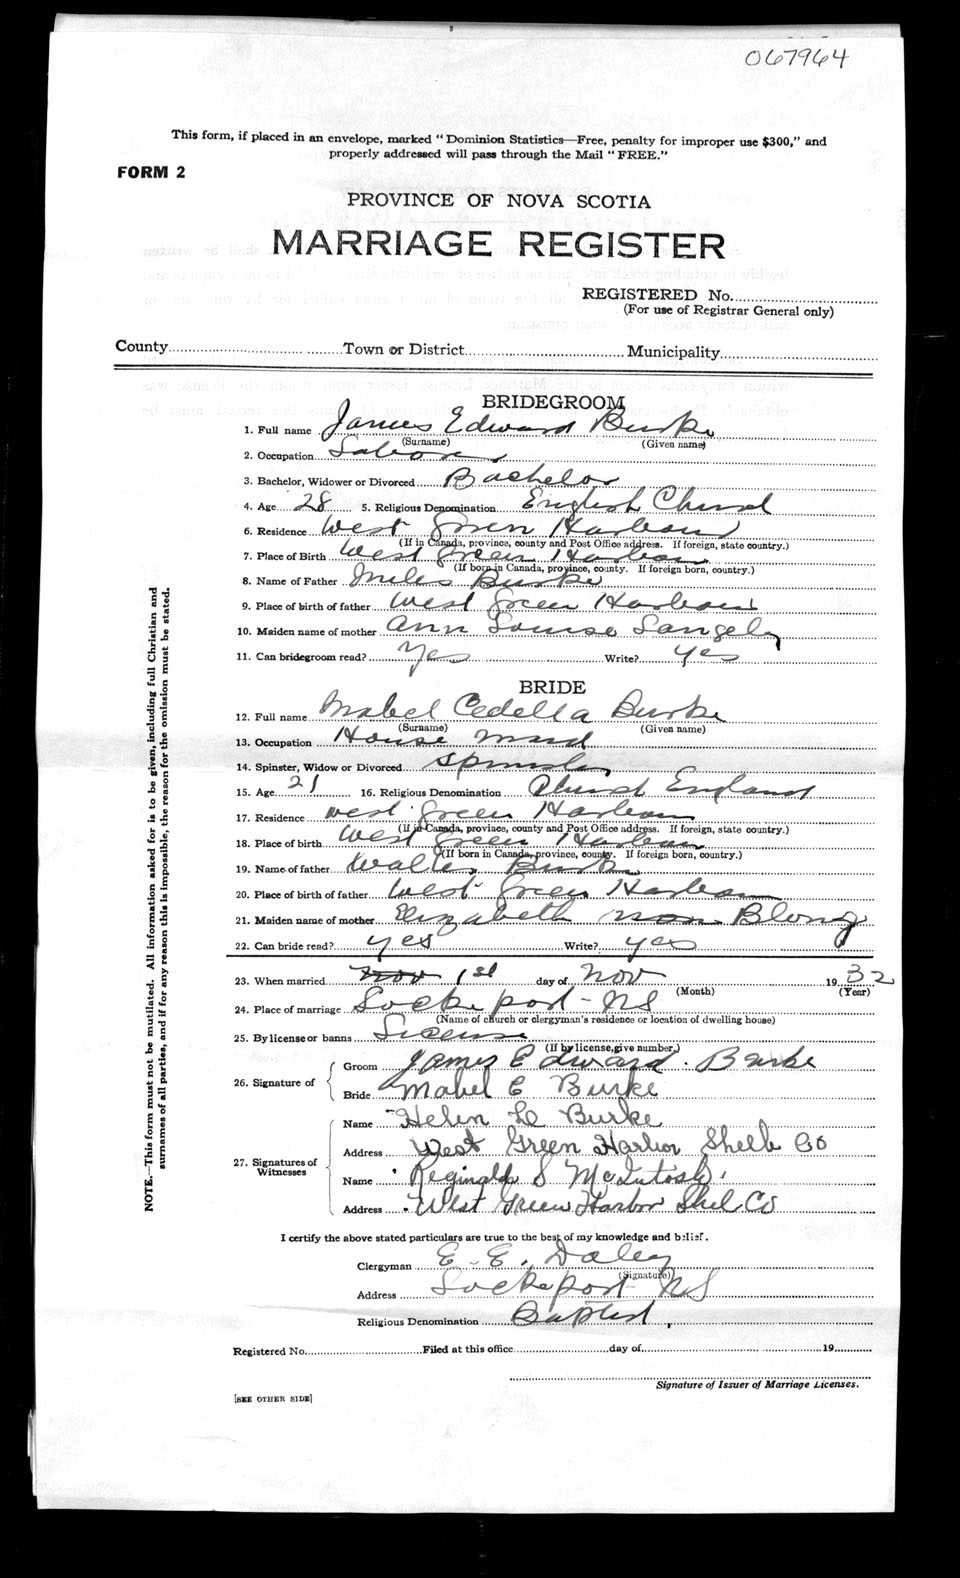 067964
This form, if placed in an envelope, marked "Dominion Statistics—Free, penalty for improper use $300," and
properly addressed will pass through the Mail "FREE."
FORM 2
PROVINCE OF NOVA SCOTIA
MARRIAGE REGISTER
REGISTERED No.
(For use of Registrar General only)
County Town or District Municipality
BRIDEGROOM
1. Full name James Edward Burke
(Surname) (Given name)
2. Occupation Laborer
3. Bachelor, Widower or Divorced Bachelor
4. Age 28 5. Religious Denomination English Church
6. Residence West Green Harbour
(If in Canada, province, county and Post Office address. If foreign, state country.)
7. Place of Birth West Green Harbour
(If born in Canada, province, county. If foreign born, country.)
8. Name of Father Miles Burke
9. Place of birth of father West Green Harbour
10. Maiden name of mother Ann Louise Langely
11. Can bridegroom read? Yes Write? yes
BRIDE
12. Full name Mabel Cedella Burke
(Surname) (Given name)
13. Occupation House Maid
14. Spinster, Widow or Divorced Spinster
15. Age 21 16. Religious Denomination Church England
17. Residence West Green Harbour
(If in Canada, province, county and Post Office address. If foreign, state country.)
18. Place of birth West Green Harbour
(If born in Canada, province, county. If foreign born, country.)
19. Name of father Walter Burke
20. Place of birth of father West Green Harbour
21. Maiden name of mother Elizabeth Blong
22. Can bride read? yes Write? yes
23. When married Nov 1st day of Nov 1932
(Month) (Year)
24. Place of marriage Lockeport - NS
(Name of church or clergyman's residence or location of dwelling house)
25. By license or banns License
(If by license, give number.)
26. Signature of
Groom James Edward. Burke
Bride Mabel C Burke
27. Signatures of Witnesses
Name Helen L Burke
Address West Green Harbor Shelb Co
Name Reginald S McIntosh
Address West Green Harbor Shel. Co
I certify the above stated particulars are true to the best of my knowledge and belief.
Clergyman E. E. Daley
(Signature)
Address Lockeport NS
Religious Denomination Baptist
Registered No. Filed at this office day of 19
Signature of Issuer of Marriage Licenses.
[SEE OTHER SIDE]
NOTE.—This form must not be mutilated. All information asked for is to be given, including full Christian and
surnames of all parties, and if for any reason this is impossible, the reason for the omission must be stated.